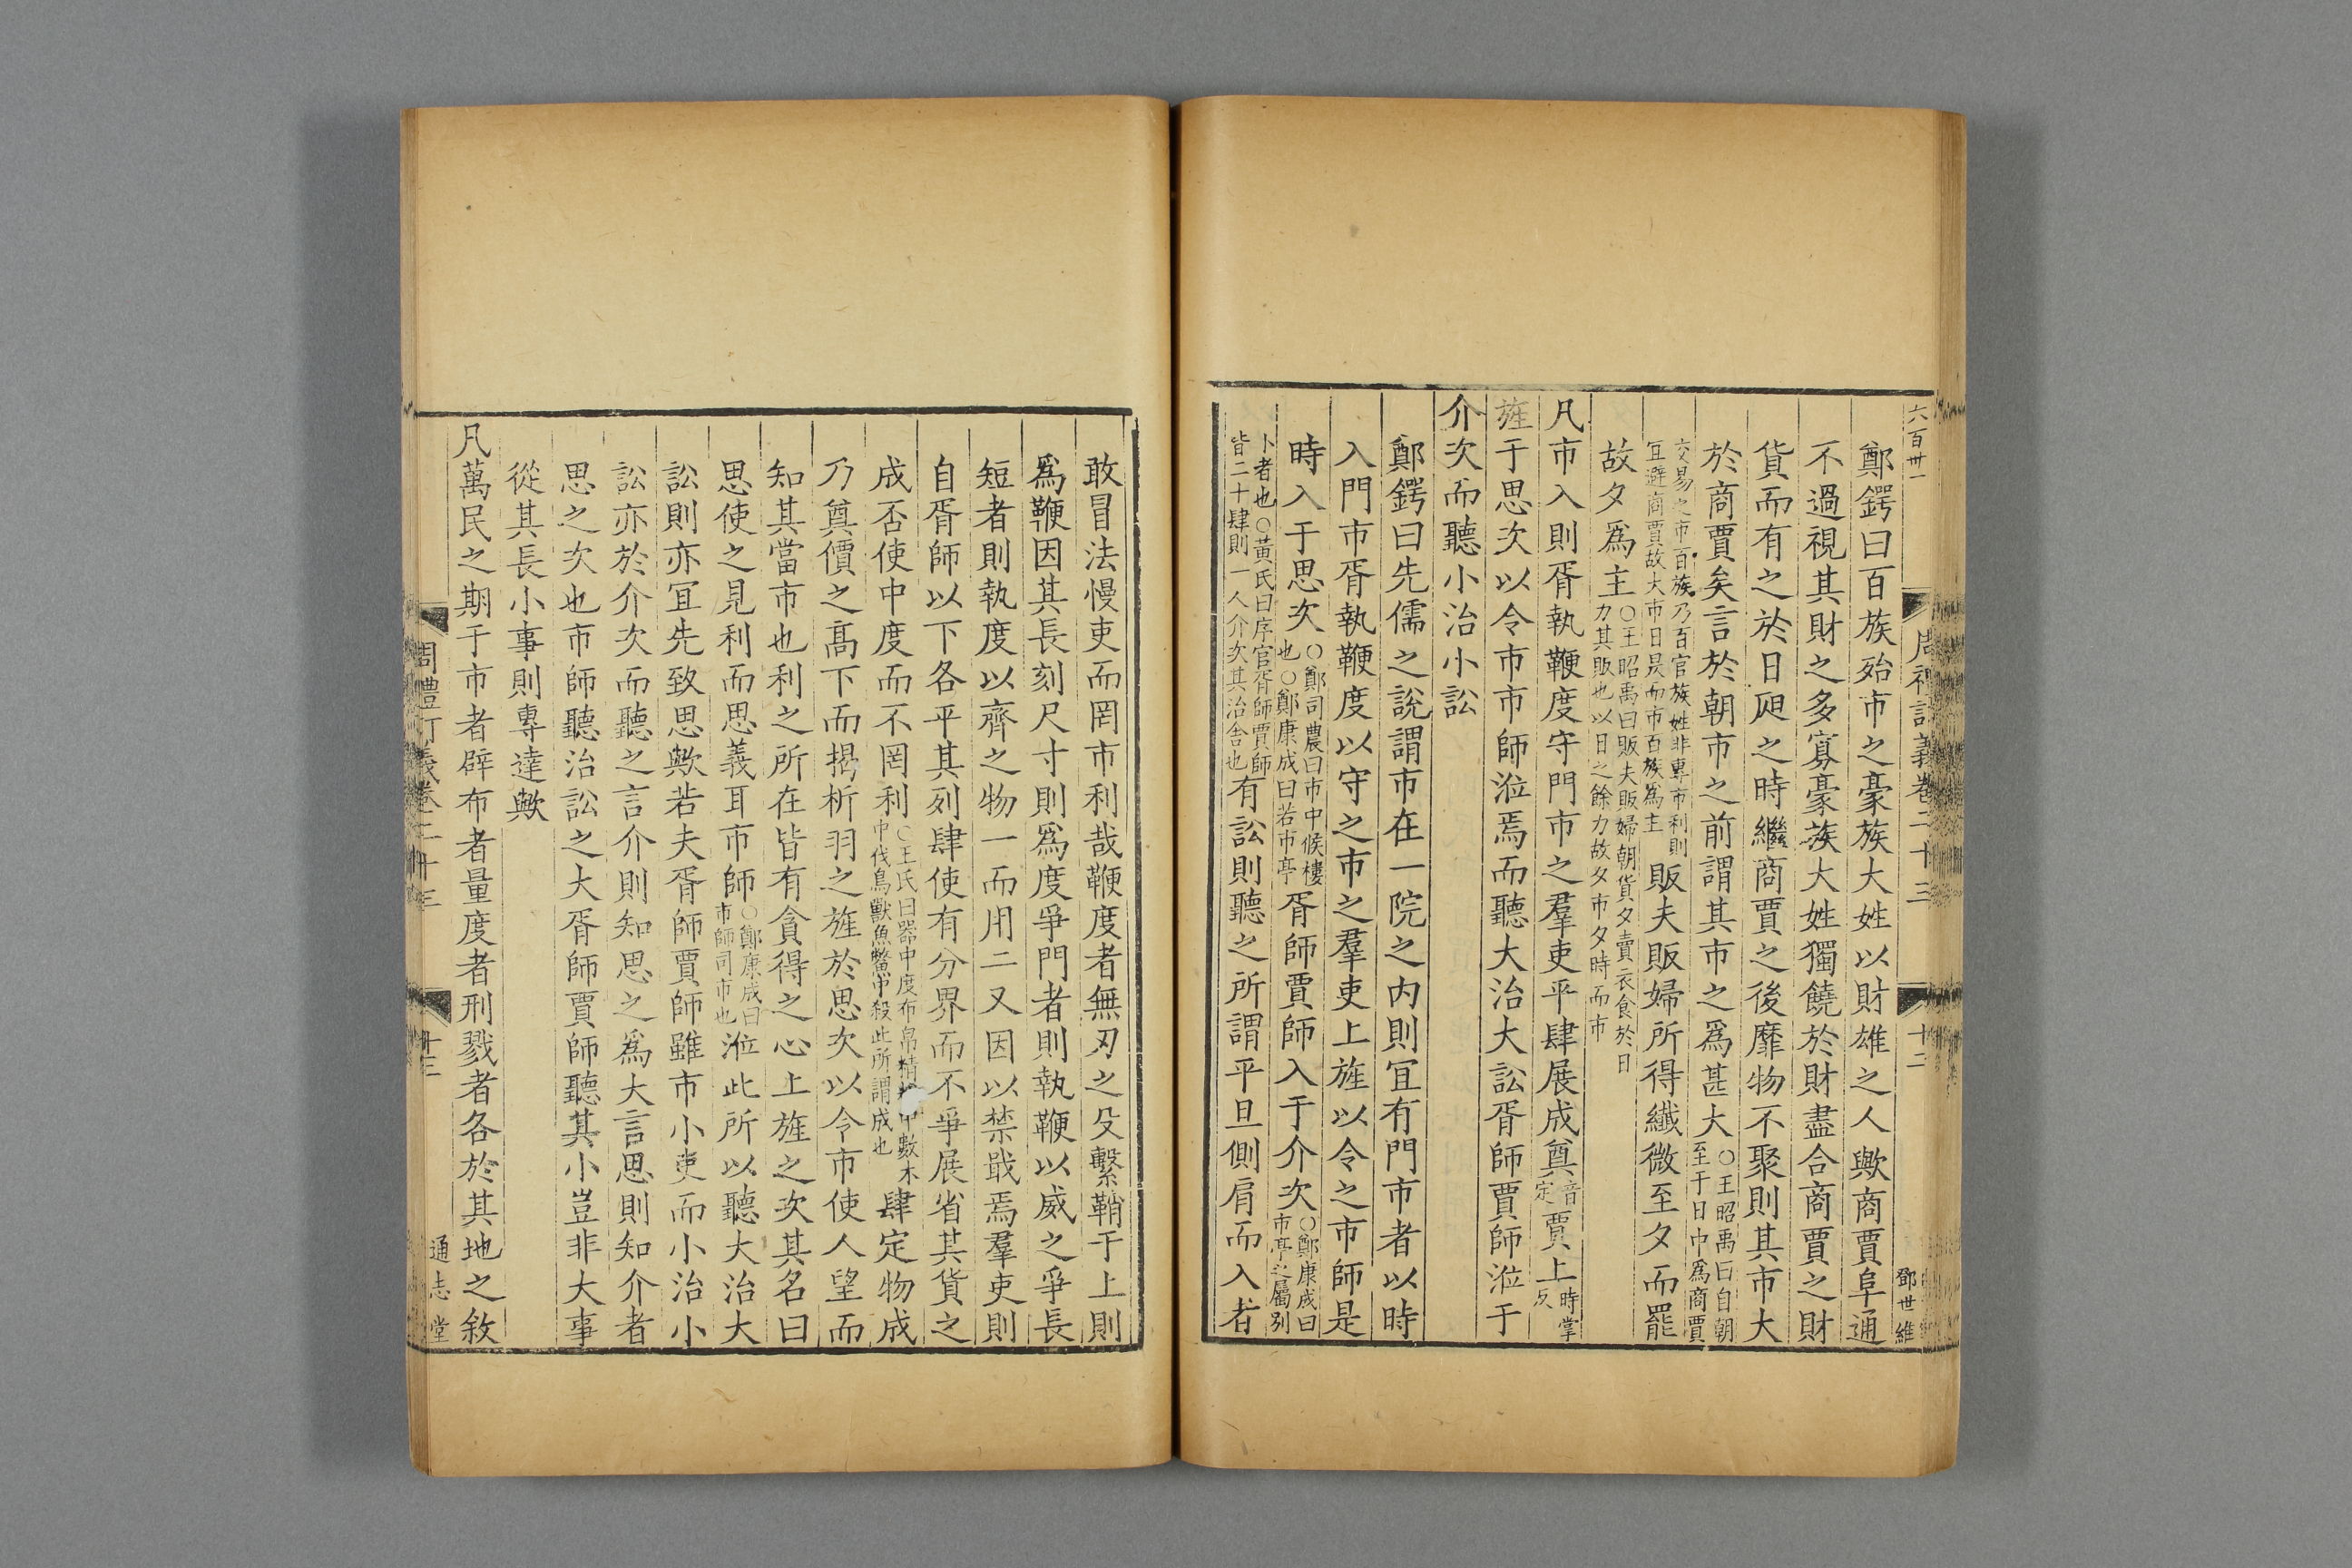 六百卅一
周禮訂義卷二十三
十二
鄧世維
鄭鍔曰百族殆市之豪族大姓以財雄之人歟商賈阜通
不過視其財之多寡豪族大姓獨饒於財盡合商賈之財
貨而有之於日昃之時繼商賈之後靡物不聚則其市大
於商賈矣言於朝市之前謂其市之爲甚大○王昭禹曰自朝至于日中爲商賈
交易之市百族乃百官族姓非專市利則宜避商賈故大市日昃而市百族爲主販夫販婦所得纖微至夕而罷
故夕爲主○王昭禹曰販夫販婦朝貨夕賣衣食於日力其販也以日之餘力故夕市夕時而市
凡市入則胥執鞭度守門市之羣吏平肆展成奠音定賈上時掌反
旌于思次以令市市師涖焉而聽大治大訟胥師賈師涖于
介次而聽小治小訟
鄭鍔曰先儒之說謂市在一院之内則宜有門市者以時
入門市胥執鞭度以守之市之羣吏上旌以令之市師是
時入于思次○鄭司農曰市中候樓也○鄭康成曰若市亭胥師賈師入于介次○鄭康成曰市亭之屬別
卜者也○黃氏曰序官胥師賈師皆二十肆則一人介次其治舍也有訟則聽之所謂平旦側肩而入者
敢冒法慢吏而罔市利哉鞭度者無刃之殳繫鞘于上則
爲鞭因其長刻尺寸則爲度爭門者則執鞭以威之爭長
短者則執度以齊之物一而用二又因以禁戢焉羣吏則
自胥師以下各平其列肆使有分界而不爭展省其貨之
成否使中度而不罔利○王氏曰器中度布帛精麤中數木中伐鳥獸魚鱉中殺此所謂成也肆定物成
乃奠價之高下而揭析羽之旌於思次以令市使人望而
知其當市也利之所在皆有貪得之心上旌之次其名曰
思使之見利而思義耳市師○鄭康成曰市師司市也涖此所以聽大治大
訟則亦宜先致思歟若夫胥師賈師雖市小吏而小治小
訟亦於介次而聽之言介則知思之爲大言思則知介者
思之次也市師聽治訟之大胥師賈師聽其小豈非大事
從其長小事則專達歟
凡萬民之期于市者辟布者量度者刑戮者各於其地之敘
周禮訂義卷二十三
十三
通志堂